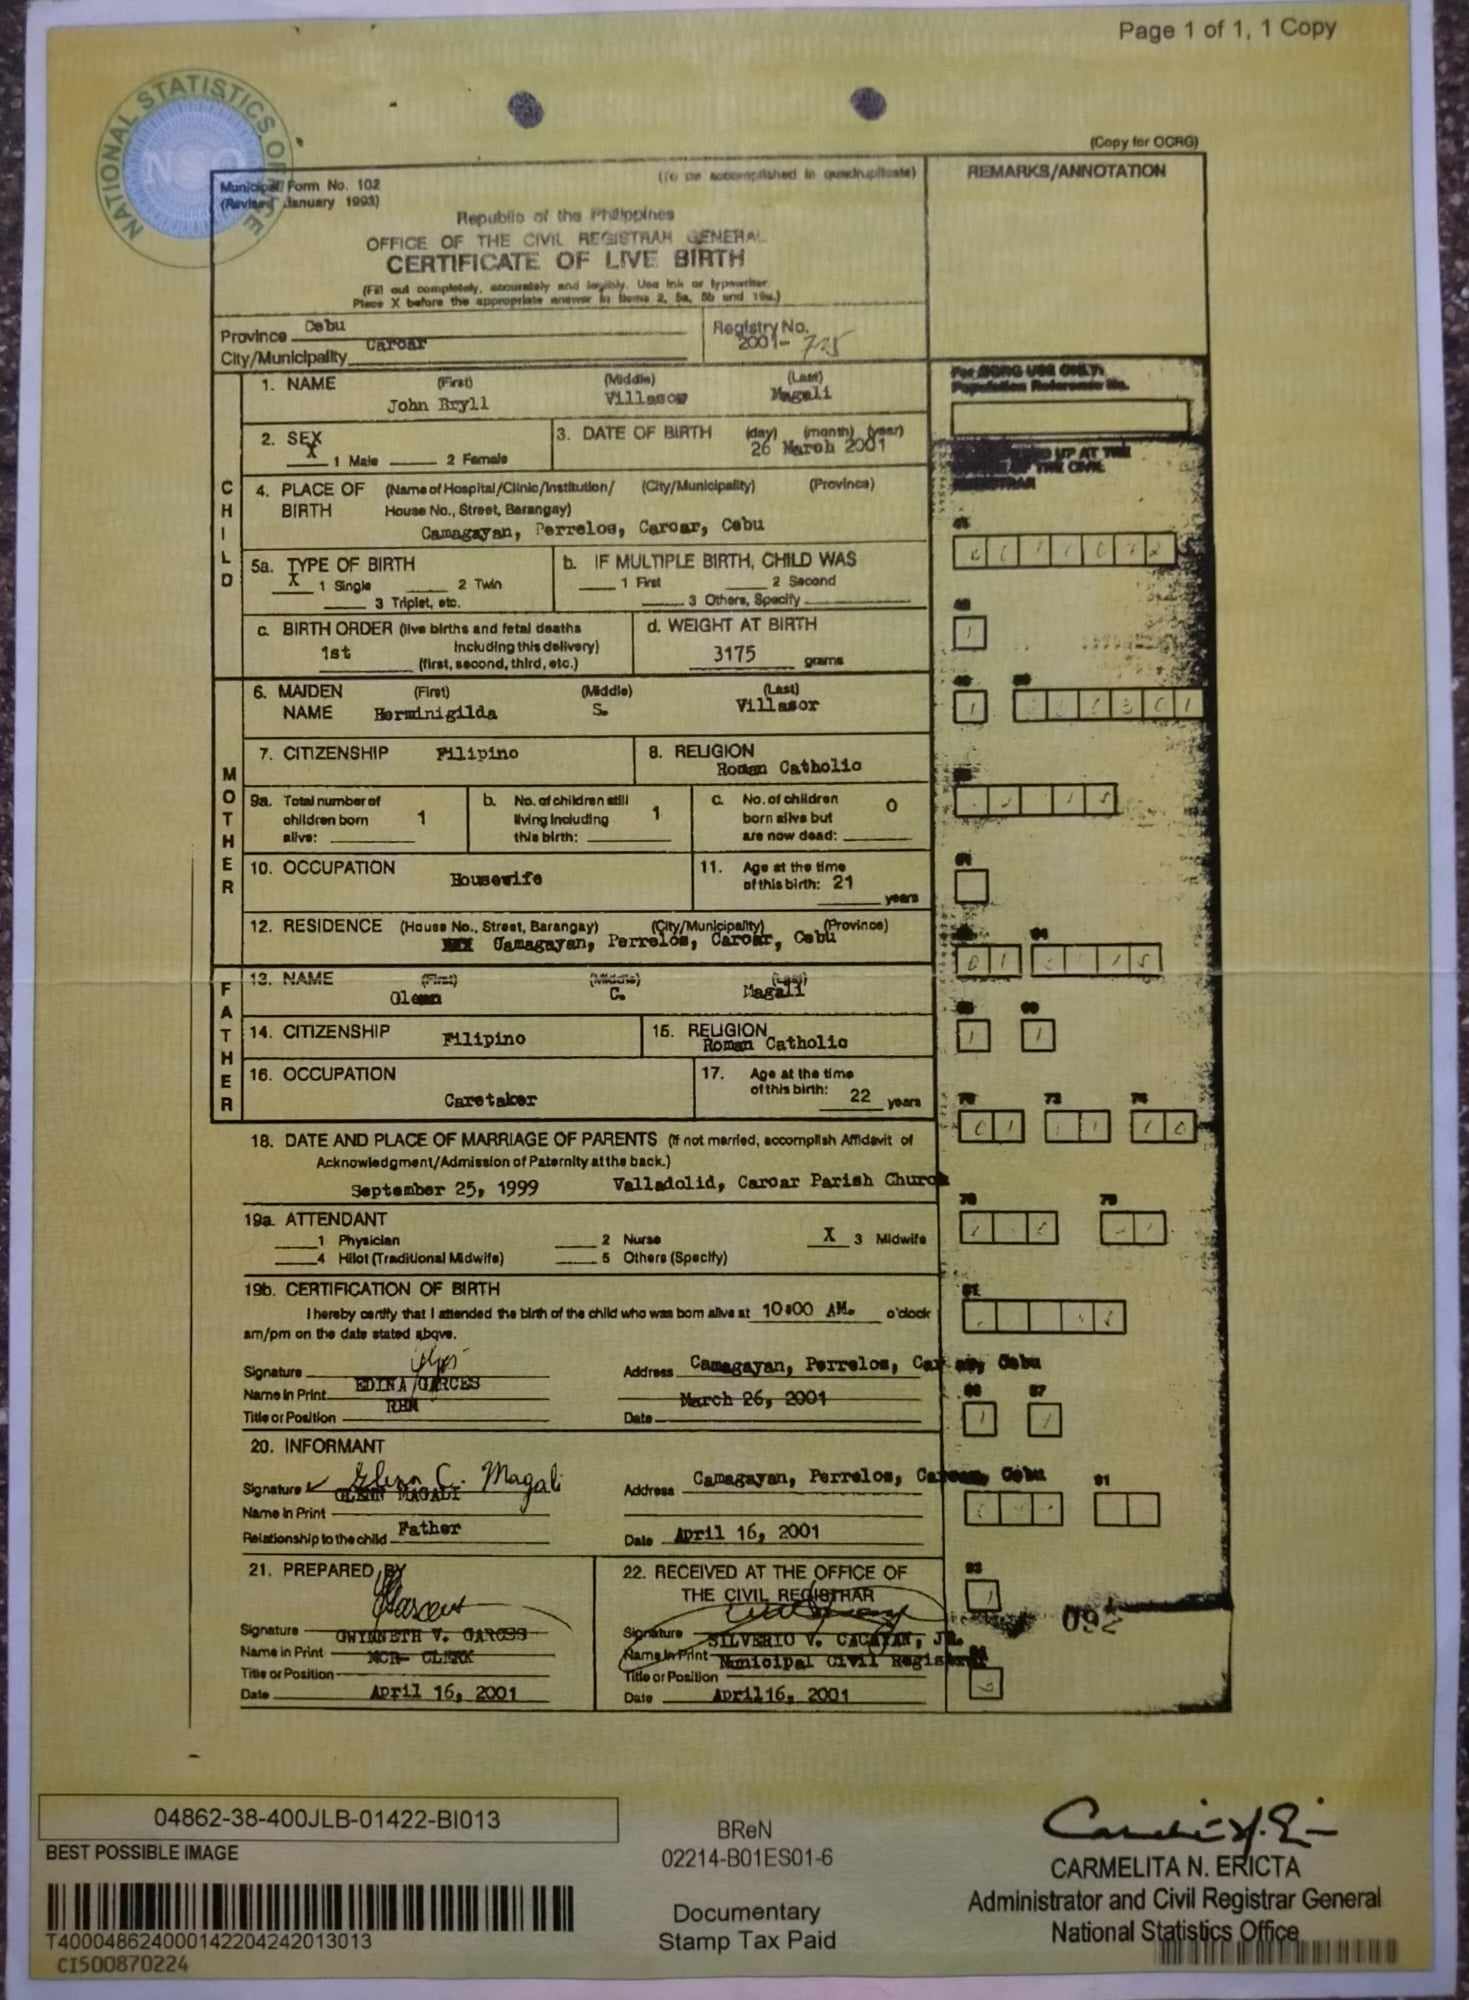 Page 1 of 1, 1 Copy
NATIONAL STATISTICS OFFICE
NSO
(Copy for OCRG)
Municipal Form No. 102
(Revised January 1993)
(To be accomplished in quadruplicate)
REMARKS/ANNOTATION
Republic of the Philippines
OFFICE OF THE CIVIL REGISTRAR GENERAL
CERTIFICATE OF LIVE BIRTH
(Fill out completely, accurately and legibly. Use ink or typewriter.
Place X before the appropriate answer in Items 2, 5a, 5b and 19a.)
Province Cebu
City/Municipality Carcar
Registry No.
2001- 725
For OCRG USE ONLY:
Population Reference No.
CHILD
1. NAME (First) (Middle) (Last)
John Bryll Villasor Magali
2. SEX
X 1 Male 2 Female
3. DATE OF BIRTH (day) (month) (year)
26 March 2001
4. PLACE OF BIRTH (Name of Hospital/Clinic/Institution/ (City/Municipality) (Province)
House No., Street, Barangay)
Camagayan, Perrelos, Carcar, Cebu
5a. TYPE OF BIRTH
X 1 Single 2 Twin
3 Triplet, etc.
b. IF MULTIPLE BIRTH, CHILD WAS
1 First 2 Second
3 Others, Specify
c. BIRTH ORDER (live births and fetal deaths
including this delivery)
1st (first, second, third, etc.)
d. WEIGHT AT BIRTH
3175 grams
MOTHER
6. MAIDEN NAME (First) (Middle) (Last)
Herminigilda S. Villasor
7. CITIZENSHIP Filipino
8. RELIGION
Roman Catholic
9a. Total number of
children born
alive: 1
b. No. of children still
living including
this birth: 1
c. No. of children
born alive but
are now dead: 0
10. OCCUPATION Housewife
11. Age at the time
of this birth: 21 years
12. RESIDENCE (House No., Street, Barangay) (City/Municipality) (Province)
Camagayan, Perrelos, Carcar, Cebu
FATHER
13. NAME (First) (Middle) (Last)
Glenn C. Magali
14. CITIZENSHIP Filipino
15. RELIGION
Roman Catholic
16. OCCUPATION
Caretaker
17. Age at the time
of this birth: 22 years
18. DATE AND PLACE OF MARRIAGE OF PARENTS (If not married, accomplish Affidavit of
Acknowledgment/Admission of Paternity at the back.)
September 25, 1999 Valladolid, Carcar Parish Church
19a. ATTENDANT
1 Physician 2 Nurse X 3 Midwife
4 Hilot (Traditional Midwife) 5 Others (Specify)
19b. CERTIFICATION OF BIRTH
I hereby certify that I attended the birth of the child who was born alive at 10:00 AM. o'clock
am/pm on the date stated above.
Signature
Name in Print EDINA GARCES
Title or Position RHM
Address Camagayan, Perrelos, Carcar, Cebu
Date March 26, 2001
20. INFORMANT
Signature Glenn C. Magali
Name in Print GLENN MAGALI
Relationship to the child Father
Address Camagayan, Perrelos, Carcar, Cebu
Date April 16, 2001
21. PREPARED BY
Signature
Name in Print GWYNNETH V. GARCES
Title or Position MCR- CLERK
Date April 16, 2001
22. RECEIVED AT THE OFFICE OF
THE CIVIL REGISTRAR
Signature
Name in Print SILVERIO V. CACAYAN, JR.
Title or Position Municipal Civil Registrar
Date April 16, 2001
04862-38-400JLB-01422-BI013
BEST POSSIBLE IMAGE
T400048624000142204242013013
CI500870224
BReN
02214-B01ES01-6
Documentary
Stamp Tax Paid
CARMELITA N. ERICTA
Administrator and Civil Registrar General
National Statistics Office